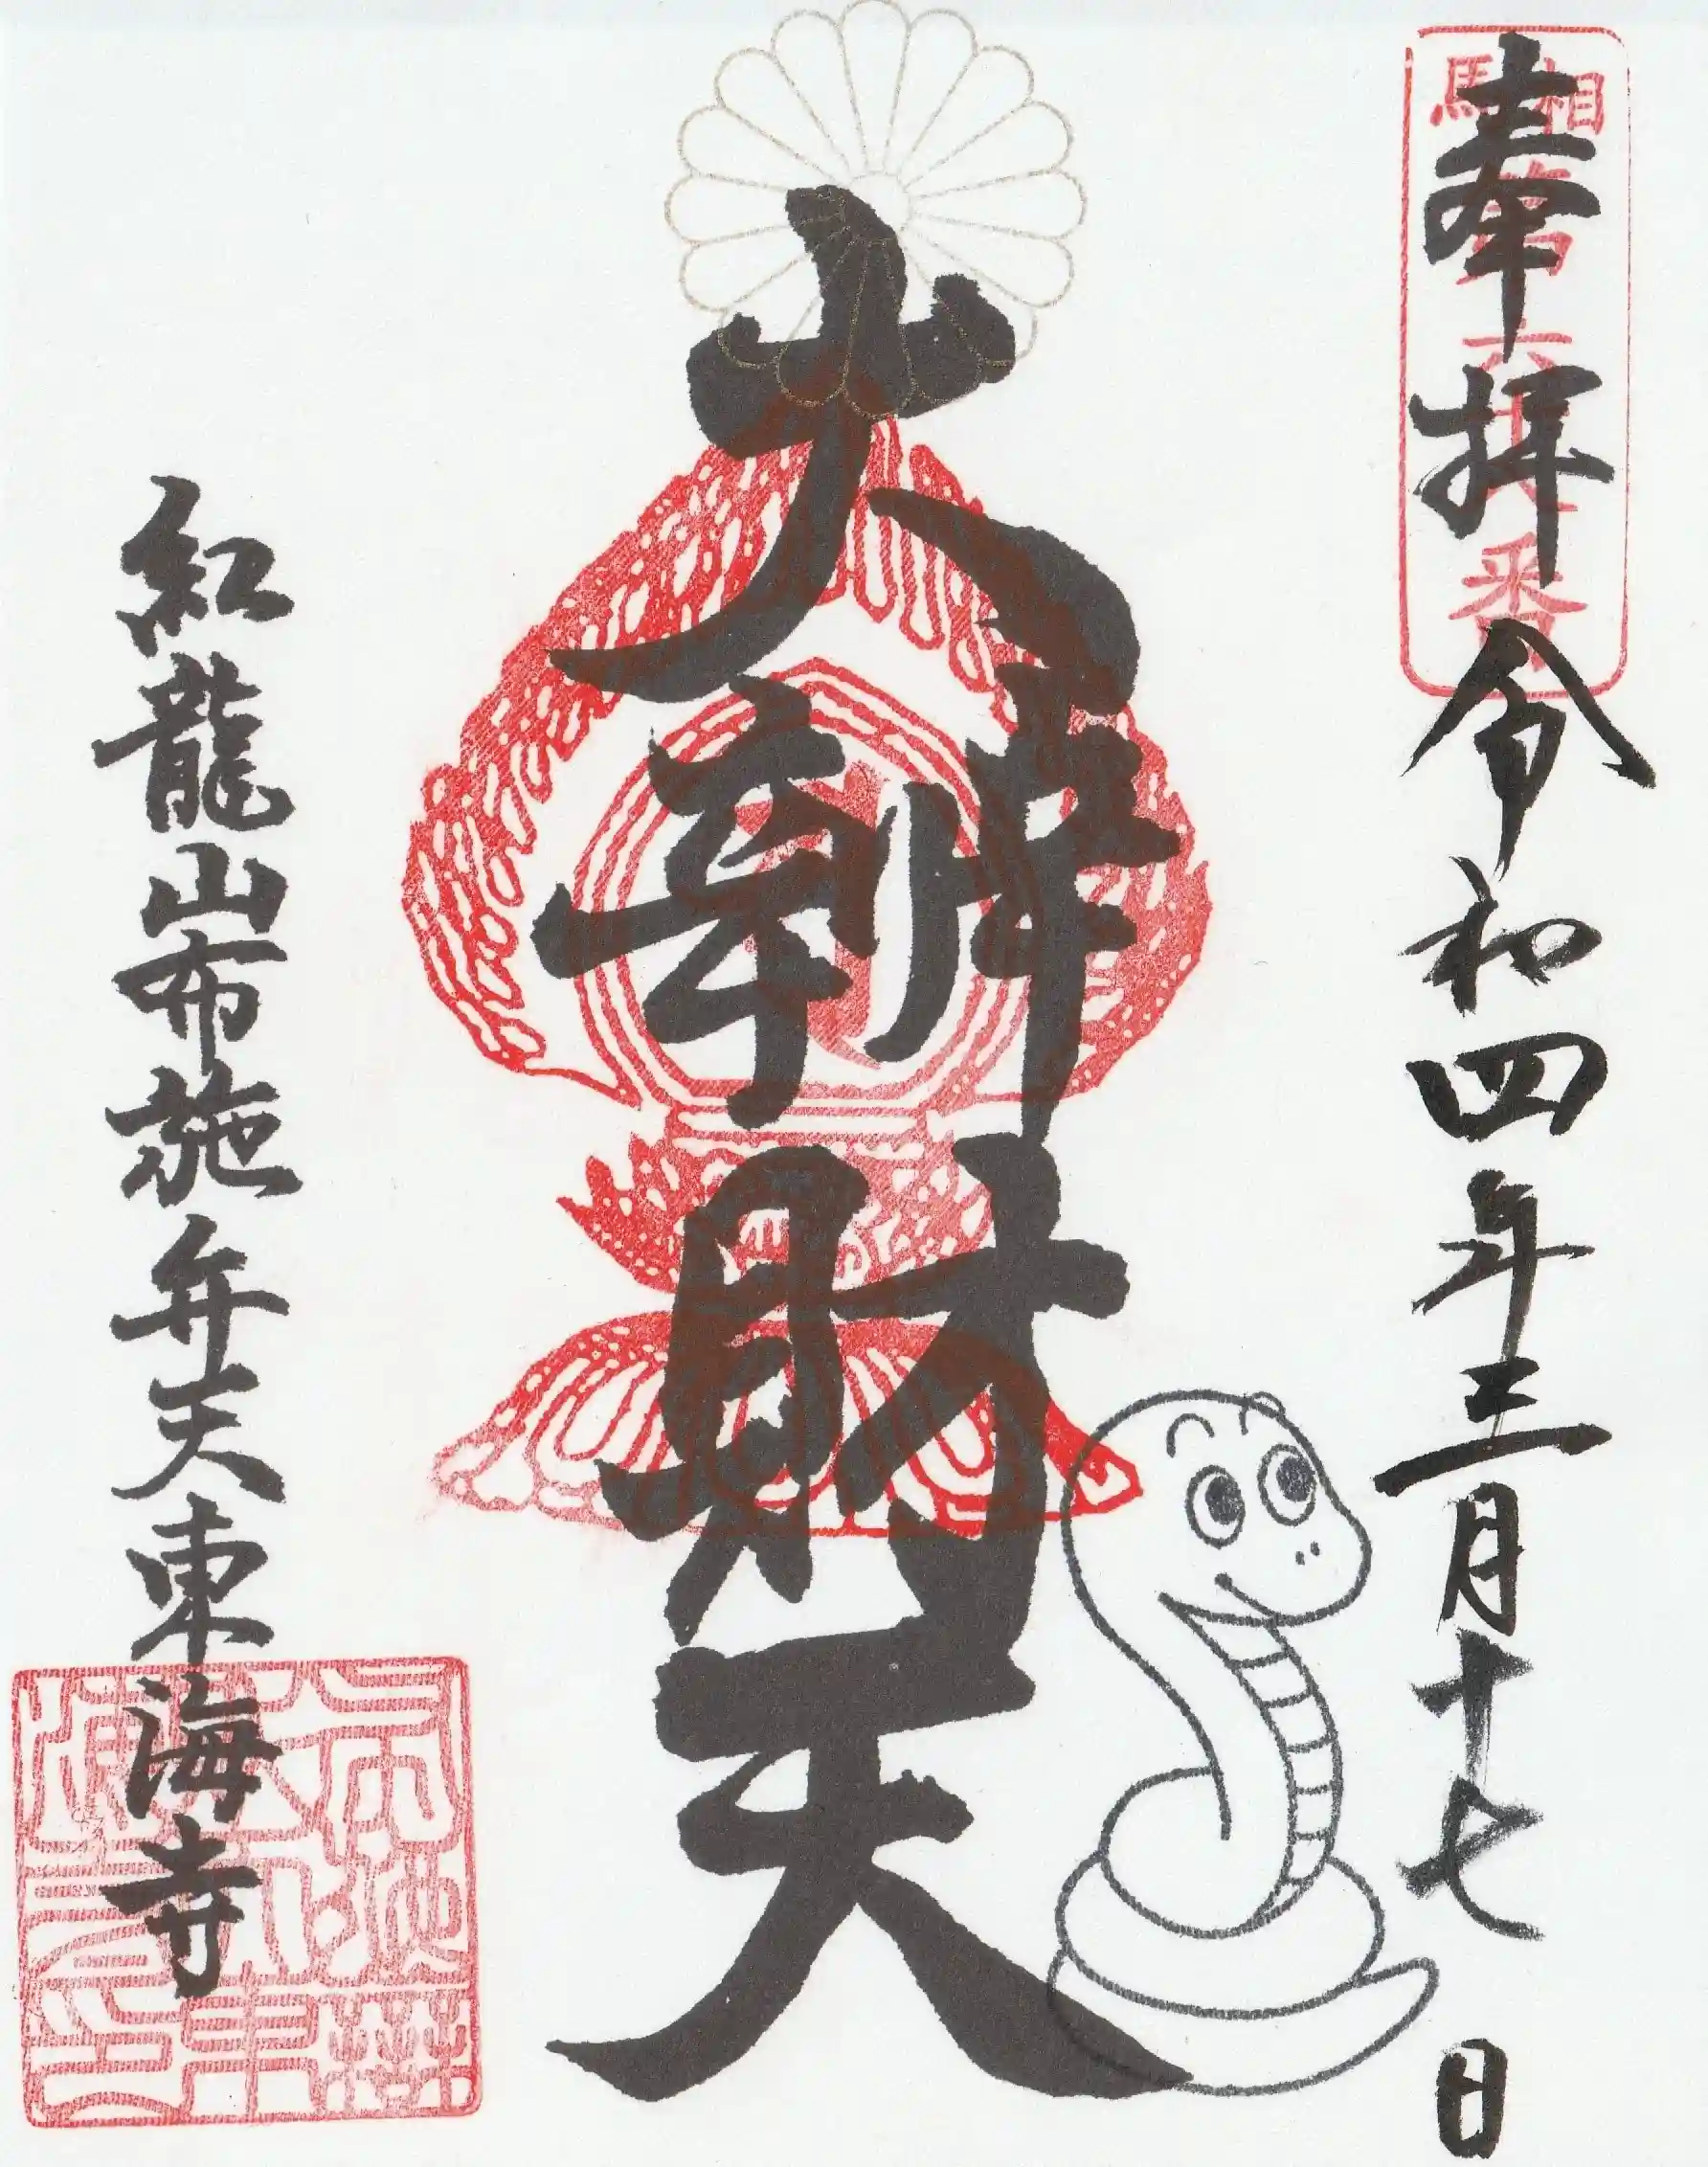 相馬
奉拝 令和四年三月十七日
大辨財天
紅龍山布施弁天東海寺